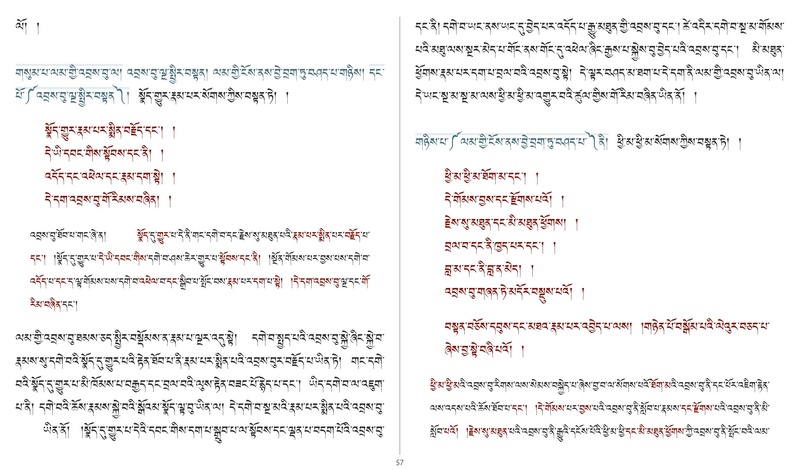 ལོ། །
གསུམ་པ་ལམ་གྱི་འབྲས་བུ་ལ། འབྲས་བུ་ལྔ་སྤྱིར་བསྟན། ལམ་གྱི་ངོས་ནས་བྱེ་བྲག་ཏུ་བཤད་པ་གཉིས། དང་
པོ་༼འབྲས་བུ་ལྔ་སྤྱིར་བསྟན་༽། སྣོད་གྱུར་རྣམ་པར་སོགས་ཀྱིས་བསྟན་ཏེ། །
སྣོད་གྱུར་རྣམ་པར་སྨིན་བརྗོད་དང་། །
དེ་ཡི་དབང་གིས་སྟོབས་དང་ནི། །
འདོད་དང་འཕེལ་དང་རྣམ་དག་སྟེ། །
དེ་དག་འབྲས་བུ་གོ་རིམས་བཞིན། །
འབྲས་བུ་ཐོབ་པ་གང་ཞེ་ན། སྣོད་དུ་གྱུར་པ་དེ་ནི་གང་དགེ་བ་དང་རྗེས་སུ་མཐུན་པའི་རྣམ་པར་སྨིན་པར་བརྗོད་པ་
དང་། །སྣོད་དུ་གྱུར་པ་དེ་ཡི་དབང་གིས་དགེ་བ་ཤས་ཆེར་གྱུར་པ་སྟོབས་དང་ནི། །སྔོན་གོམས་པར་བྱས་པས་དགེ་བ་
འདོད་པ་དང་ད་ལྟ་གོམས་པས་དགེ་བ་འཕེལ་བ་དང་སྒྲིབ་པ་སྤོང་བས་རྣམ་པར་དག་པ་སྟེ། །དེ་དག་འབྲས་བུ་ལྔ་དང་གོ་
རིམ་བཞིན་དང་།
ལམ་གྱི་འབྲས་བུ་ཐམས་ཅད་སྤྱིར་བསྡོམས་ན་རྣམ་པ་ལྔར་འདུ་སྟེ། དགེ་བ་སྤྱད་པའི་འབྲས་བུ་སྐྱེ་ཞིང་སྐྱེ་བ་
རྣམས་སུ་དགེ་བའི་སྣོད་དུ་གྱུར་པའི་རྟེན་ཐོབ་པ་ནི་རྣམ་པར་སྨིན་པའི་འབྲས་བུར་བརྗོད་པ་ཡིན་ཏེ། གང་དགེ་
བའི་སྣོད་དུ་གྱུར་པ་མི་ཁོམས་པ་བརྒྱད་དང་བྲལ་བའི་ལུས་རྟེན་བཟང་པོ་རྙེད་པ་དང་། ཡིད་དགེ་བ་ལ་འཇུག་
པ་ནི། དགེ་བའི་ཆོས་རྣམས་སྐྱེ་བའི་སྒོའམ་སྣོད་ལྟ་བུ་ཡིན་ལ། དེ་དགེ་བ་སྔ་མའི་རྣམ་པར་སྨིན་པའི་འབྲས་བུ་
ཡིན་ནོ། །སྣོད་དུ་གྱུར་པ་དེའི་དབང་གིས་དག་པ་སྒྲུབ་པ་ལ་སྟོབས་དང་ལྡན་པ་བདག་པོའི་འབྲས་བུ་
དང་ནི། དགེ་བ་ཡང་ནས་ཡང་དུ་བྱེད་པར་འདོད་པ་རྒྱུ་མཐུན་གྱི་འབྲས་བུ་དང་། ཚེ་འདིར་དགེ་བ་སྔ་མ་གོམས་
པའི་མཐུ་ལས་སྔར་མེད་པ་གོང་ནས་གོང་དུ་འཕེལ་ཞིང་རྒྱས་པ་སྐྱེས་བུ་བྱེད་པའི་འབྲས་བུ་དང་། མི་མཐུན་
ཕྱོགས་རྣམ་པར་དག་པ་བྲལ་བའི་འབྲས་བུ་སྟེ། དེ་ལྟར་བཤད་མ་ཐག་པ་དེ་དག་ནི་ལམ་གྱི་འབྲས་བུ་ཡིན་ལ།
དེ་ཡང་སྔ་མ་སྔ་མ་ལས་ཕྱི་མ་ཕྱི་མ་འགྱུར་བའི་ཚུལ་གྱིས་གོ་རིམ་བཞིན་ནོ། །
གཉིས་པ་༼ལམ་གྱི་ངོས་ནས་བྱེ་བྲག་ཏུ་བཤད་པ་༽ནི། ཕྱི་མ་ཕྱི་མ་སོགས་ཀྱིས་བསྟན་ཏེ། །
ཕྱི་མ་ཕྱི་མ་ཐོག་མ་དང་། །
དེ་གོམས་བྱས་དང་རྫོགས་པའོ། །
རྗེས་སུ་མཐུན་དང་མི་མཐུན་ཕྱོགས། །
བྲལ་བ་དང་ནི་ཁྱད་པར་དང་། །
བླ་མ་དང་ནི་བླ་ན་མེད། །
འབྲས་བུ་གཞན་ཏེ་མདོར་བསྡུས་པའོ། །
བསྟན་བཅོས་དབུས་དང་མཐའ་རྣམ་པར་འབྱེད་པ་ལས། །གཉེན་པོ་བསྒོམ་པའི་ལེའུར་བཅད་པ་
ཞེས་བྱ་སྟེ་བཞི་པའོ། །
ཕྱི་མ་ཕྱི་མའི་འབྲས་བུ་རིགས་ལས་སེམས་བསྐྱེད་པ་ཞེས་བྱ་བ་ལ་སོགས་པའི་ཐོག་མའི་འབྲས་བུ་ནི་དང་པོར་འཇིག་རྟེན་
ལས་འདས་པའི་ཆོས་ཐོབ་པ་དང་། །དེ་གོམས་པར་བྱས་པའི་འབྲས་བུ་ནི་སློབ་པ་རྣམས་དང་རྫོགས་པའི་འབྲས་བུ་ནི་མི་
སློབ་པའོ། །རྗེས་སུ་མཐུན་པའི་འབྲས་བུ་ནི་རྒྱུའི་དངོས་པོའི་ཕྱི་མ་ཕྱི་མ་དང་མི་མཐུན་ཕྱོགས་ཀྱི་འབྲས་བུ་ནི་སྤོང་བའི་ལམ་
57